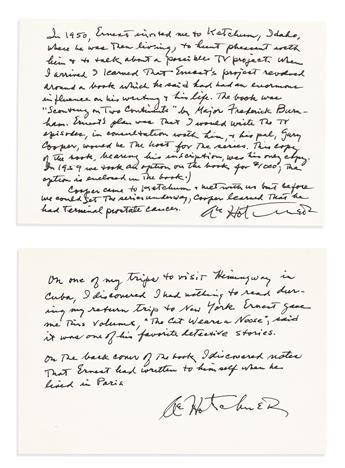 In 1950, Ernest invited me to Ketchum, Idaho,
where he was then living, to hunt pheasant with
him & to talk about a possible TV project. When
I arrived I learned that Ernest's project revolved
around a book which he said had had an enormous
influence on his writing & his life. The book was
"Scouting on Two Continents" by Major Frederick Burn-
ham. Ernest's plan was that I would write the TV
episodes, in consultation with him, & his pal, Gary
Cooper, would be the host for the series. This copy
of the book, bearing his inscription, was his own copy.
In 1959 we took an option on the book for $1000, the
option is enclosed in the book.)
Cooper came to Ketchum & met with us but before
we could get the series underway, Cooper learned that he
had terminal prostate cancer. AE Hotchner
On one of my trips to visit Hemingway in
Cuba, I discovered I had nothing to read dur-
ing my return trip to New York. Ernest gave
me this volume, "The Cat Wears a Noose", said
it was one of his favorite detective stories.
On the back cover of the book I discovered notes
that Ernest had written to himself when he
lived in Paris
AE Hotchner